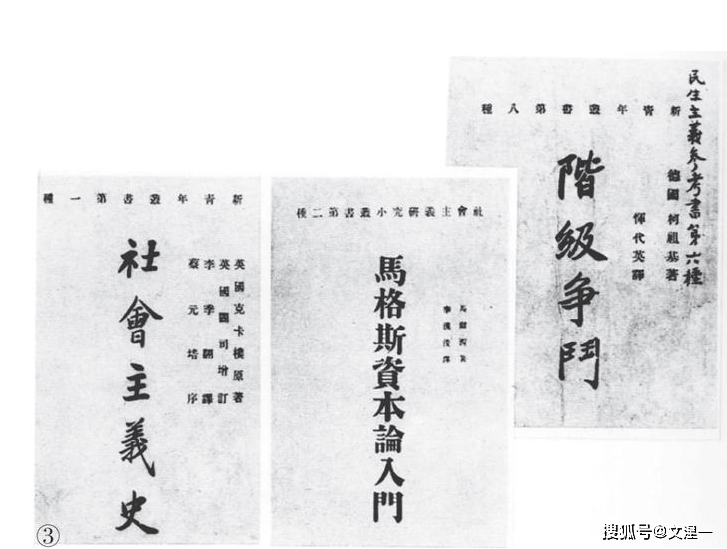 新青年叢書第一種
英國克卡樸原著
英國闢司增訂
李季翻譯
蔡元培序
社會主義史
社會主義研究小叢書第二種
馬爾西著
李漢俊譯
馬格斯資本論入門
民生主義參考書第六種
新青年叢書第八種
德國 柯祖基著
惲代英譯
階級争鬥
③
搜狐号